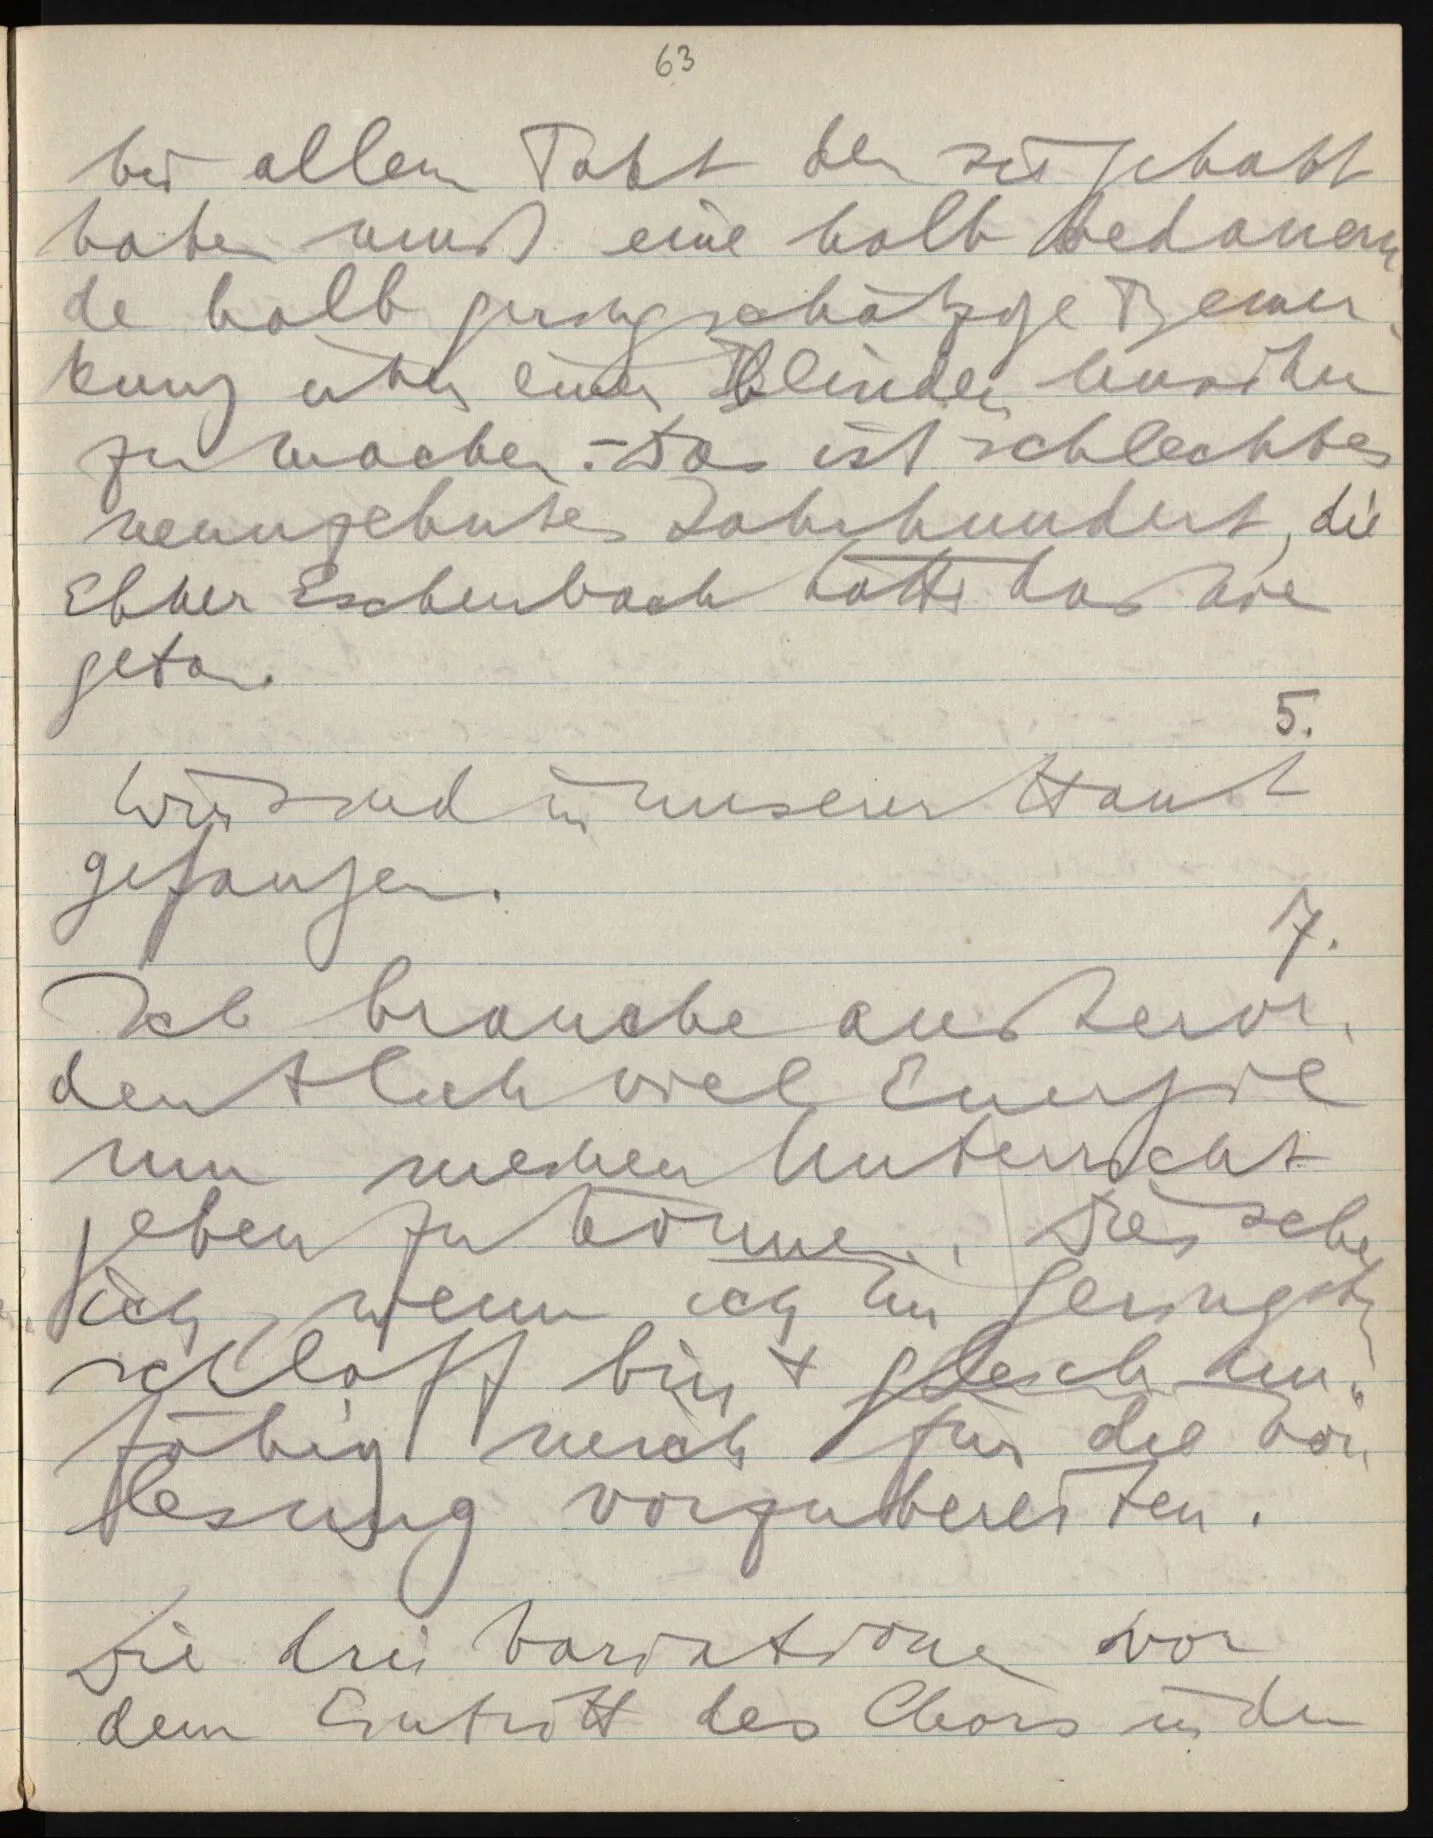 63
bei allem Takt den sie gehabt
haben muß eine halb bedauern-
de halb geringschätzige Bemer-
kung über einen blinden Musiker
zu machen. – Das ist schlechtes
neunzehntes Jahrhundert, die
Ebner Eschenbach hätte das nie
getan.
5.
Wir sind in unserer Haut
gefangen.
7.
Ich brauche außeror-
dentlich viel Energie
um meinen Unterricht
geben zu können. Dies sehe
ich, wenn ich im Geringsten
schlaff bin + gleich un-
fähig mich für die Vor-
lesung vorzubereiten.
Die drei Variationen vor
dem Eintritt des Chors in der